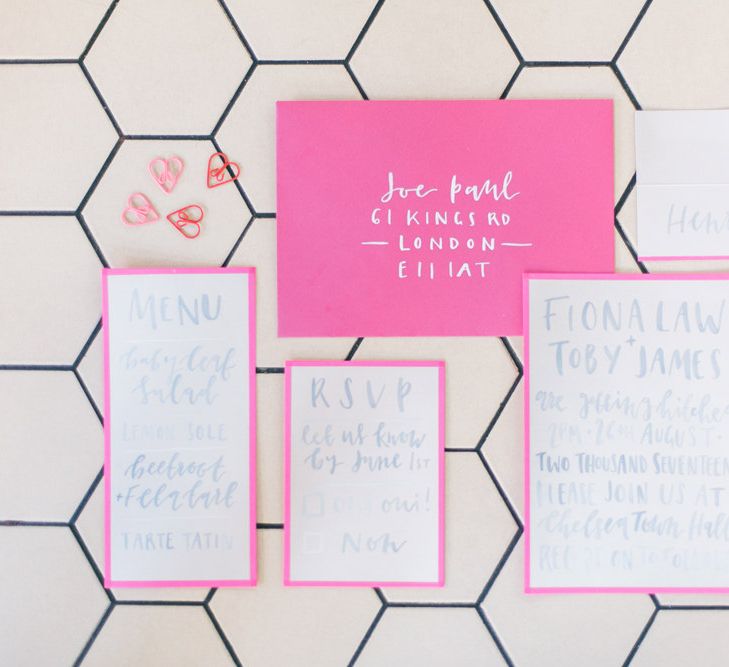 Joe Paul
61 KINGS RD
LONDON
E11 1AT
MENU
baby leaf
Salad
LEMON SOLE
beetroot
+ Feta tart
TARTE TATIN
RSVP
let us know
by June 1ST
oui oui!
Non
FIONA LAW
+
TOBY JAMES
are getting hitched
2PM · 26TH AUGUST ·
TWO THOUSAND SEVENTEEN
PLEASE JOIN US AT
Chelsea Town Hall
RECEPTION TO FOLLOW